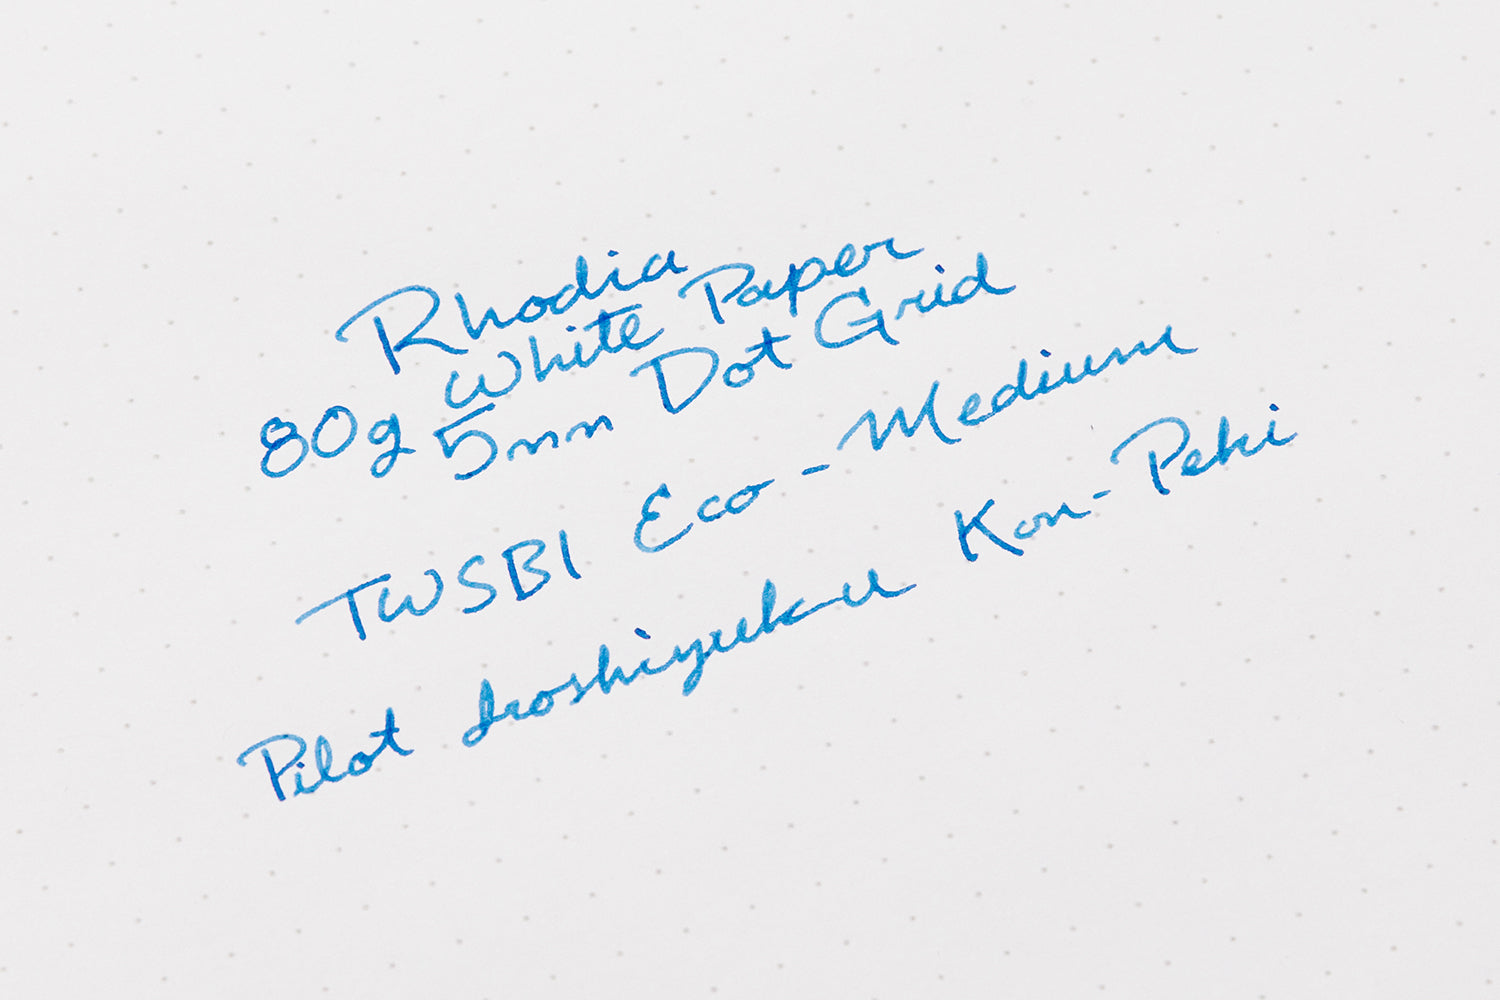 Rhodia
80g White Paper
5mm Dot Grid
TWSBI Eco - Medium
Pilot Iroshiyuku Kon-Peki